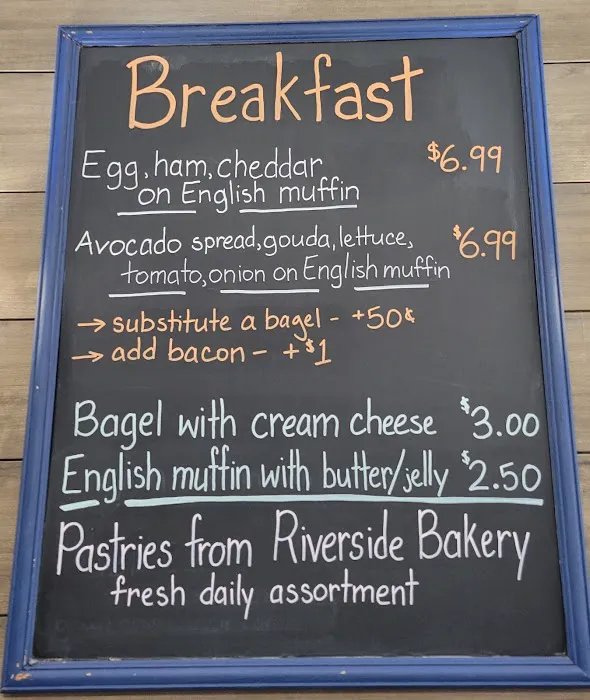 Breakfast
Egg, ham, cheddar $6.99
on English muffin
Avocado spread, gouda, lettuce, $6.99
tomato, onion on English muffin
→ substitute a bagel - +50¢
→ add bacon - + $1
Bagel with cream cheese $3.00
English muffin with butter/jelly $2.50
Pastries from Riverside Bakery
fresh daily assortment